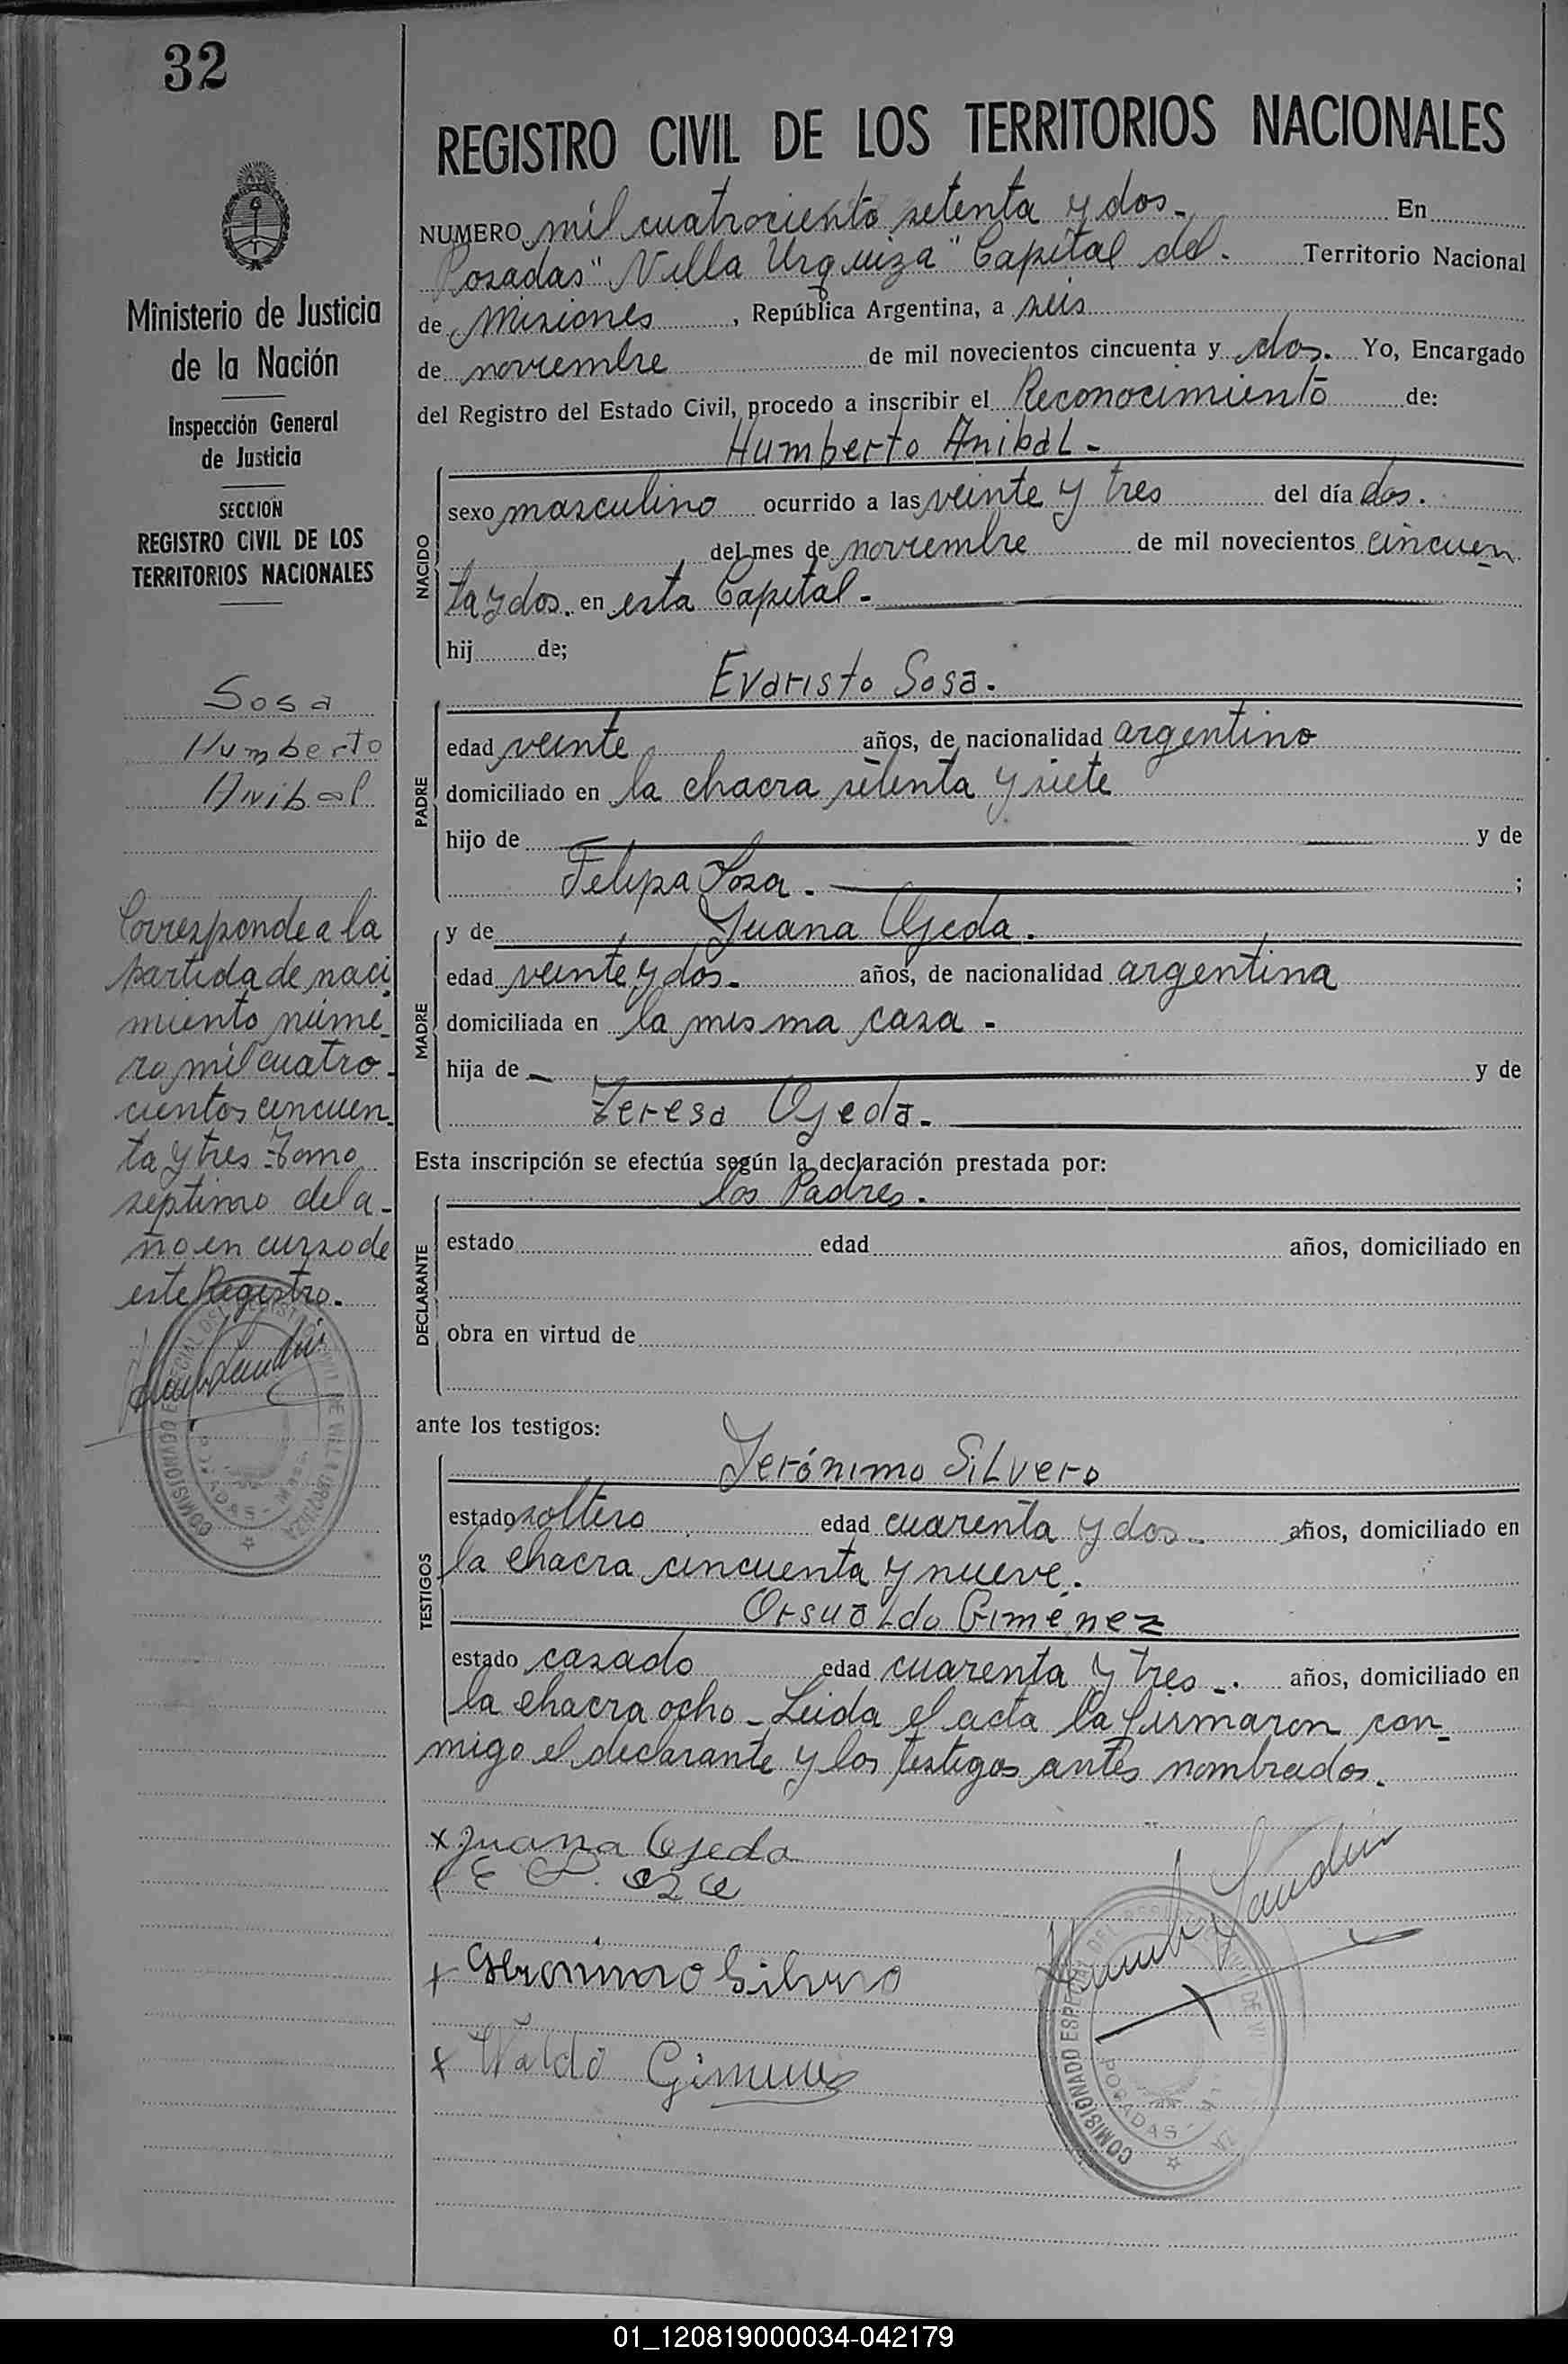 32
Ministerio de Justicia
de la Nación
Inspección General
de Justicia
SECCION
REGISTRO CIVIL DE LOS
TERRITORIOS NACIONALES
Sosa
Humberto
Anibal
Corresponde a la
partida de naci
miento núme
ro mil cuatro
cientos cincuen
ta y tres Tomo
septimo del a-
ño en curso de
este Registro.
REGISTRO CIVIL DE LOS TERRITORIOS NACIONALES
NUMERO mil cuatrociento setenta y dos- En
Posadas "Villa Urquiza" Capital del. Territorio Nacional
de Misiones, República Argentina, a seis
de noviembre de mil novecientos cincuenta y dos. Yo, Encargado
del Registro del Estado Civil, procedo a inscribir el Reconocimiento de:
Humberto Anibal-
NACIDO
sexo masculino ocurrido a las veinte y tres del día dos.
del mes de noviembre de mil novecientos cincuen
ta y dos. en esta Capital-
hij de;
Evaristo Sosa.
PADRE
edad veinte años, de nacionalidad argentino
domiciliado en la chacra setenta y siete
hijo de y de
Felipa Sosa. ;
MADRE
y de Juana Ojeda.
edad veinte y dos- años, de nacionalidad argentina
domiciliada en la misma casa-
hija de y de
Teresa Ojeda-
Esta inscripción se efectúa según la declaración prestada por:
los Padres.
DECLARANTE
estado edad años, domiciliado en
obra en virtud de
ante los testigos:
Jerónimo Silvero
TESTIGOS
estado soltero edad cuarenta y dos- años, domiciliado en
la chacra cincuenta y nueve.
Orsualdo Gimenez
estado casado edad cuarenta y tres-. años, domiciliado en
la chacra ocho- Leida el acta la firmaron con
migo el declarante y los testigos antes nombrados.
x Juana Ojeda
+ Geronimo Silvero
x Waldo Gimenez
COMISIONADO ESPECIAL DEL REGISTRO CIVIL DE VILLA URQUIZA
POSADAS
COMISIONADO ESPECIAL DEL
POSADAS
01_120819000034-042179